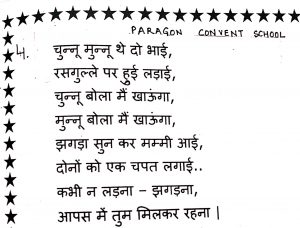 PARAGON CONVENT SCHOOL
4. चुन्नू मुन्नू थे दो भाई,
रसगुल्ले पर हुई लड़ाई,
चुन्नू बोला मैं खाऊंगा,
मुन्नू बोला मैं खाऊंगा,
झगड़ा सुन कर मम्मी आई,
दोनों को एक चपत लगाई..
कभी न लड़ना – झगड़ना,
आपस में तुम मिलकर रहना |